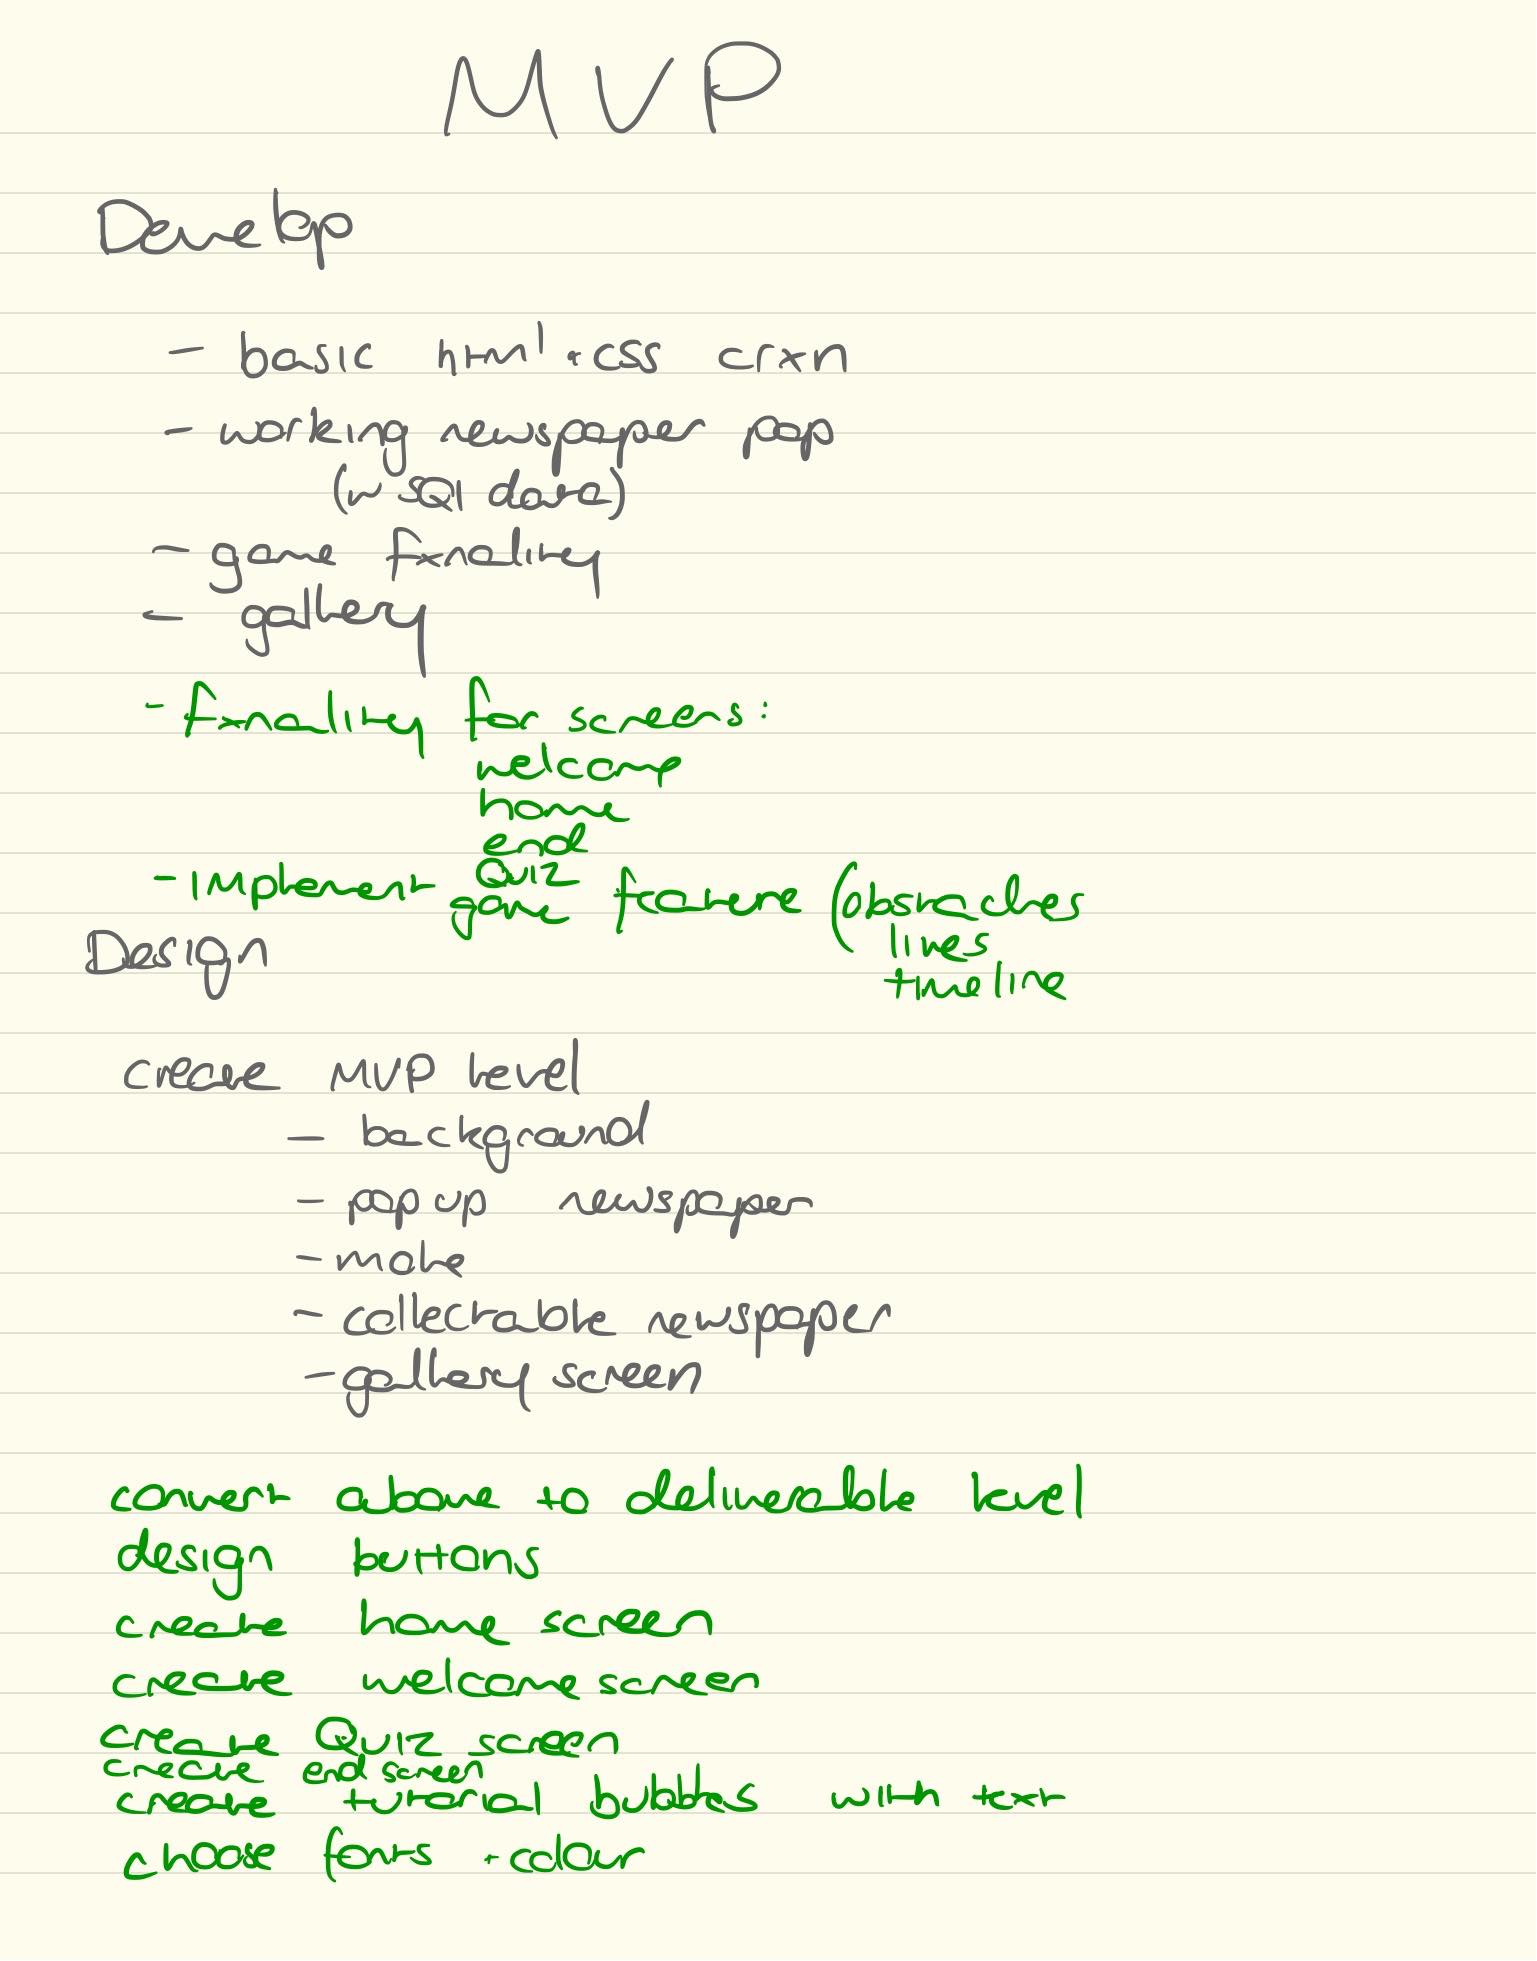 MVP
Develop
- basic html + css crxn
- working newspaper pop
(w SQl data)
- game fxnality
- gallery
- fxnality for screens:
welcome
home
end
Quiz
- implement game feature (obstacles
lives
timeline
Design
create MVP level
- background
- pop up newspaper
- mole
- collectable newspaper
- gallery screen
convert above to deliverable level
design buttons
create home screen
create welcome screen
create Quiz screen
create end screen
create tutorial bubbles with text
choose fonts + colour